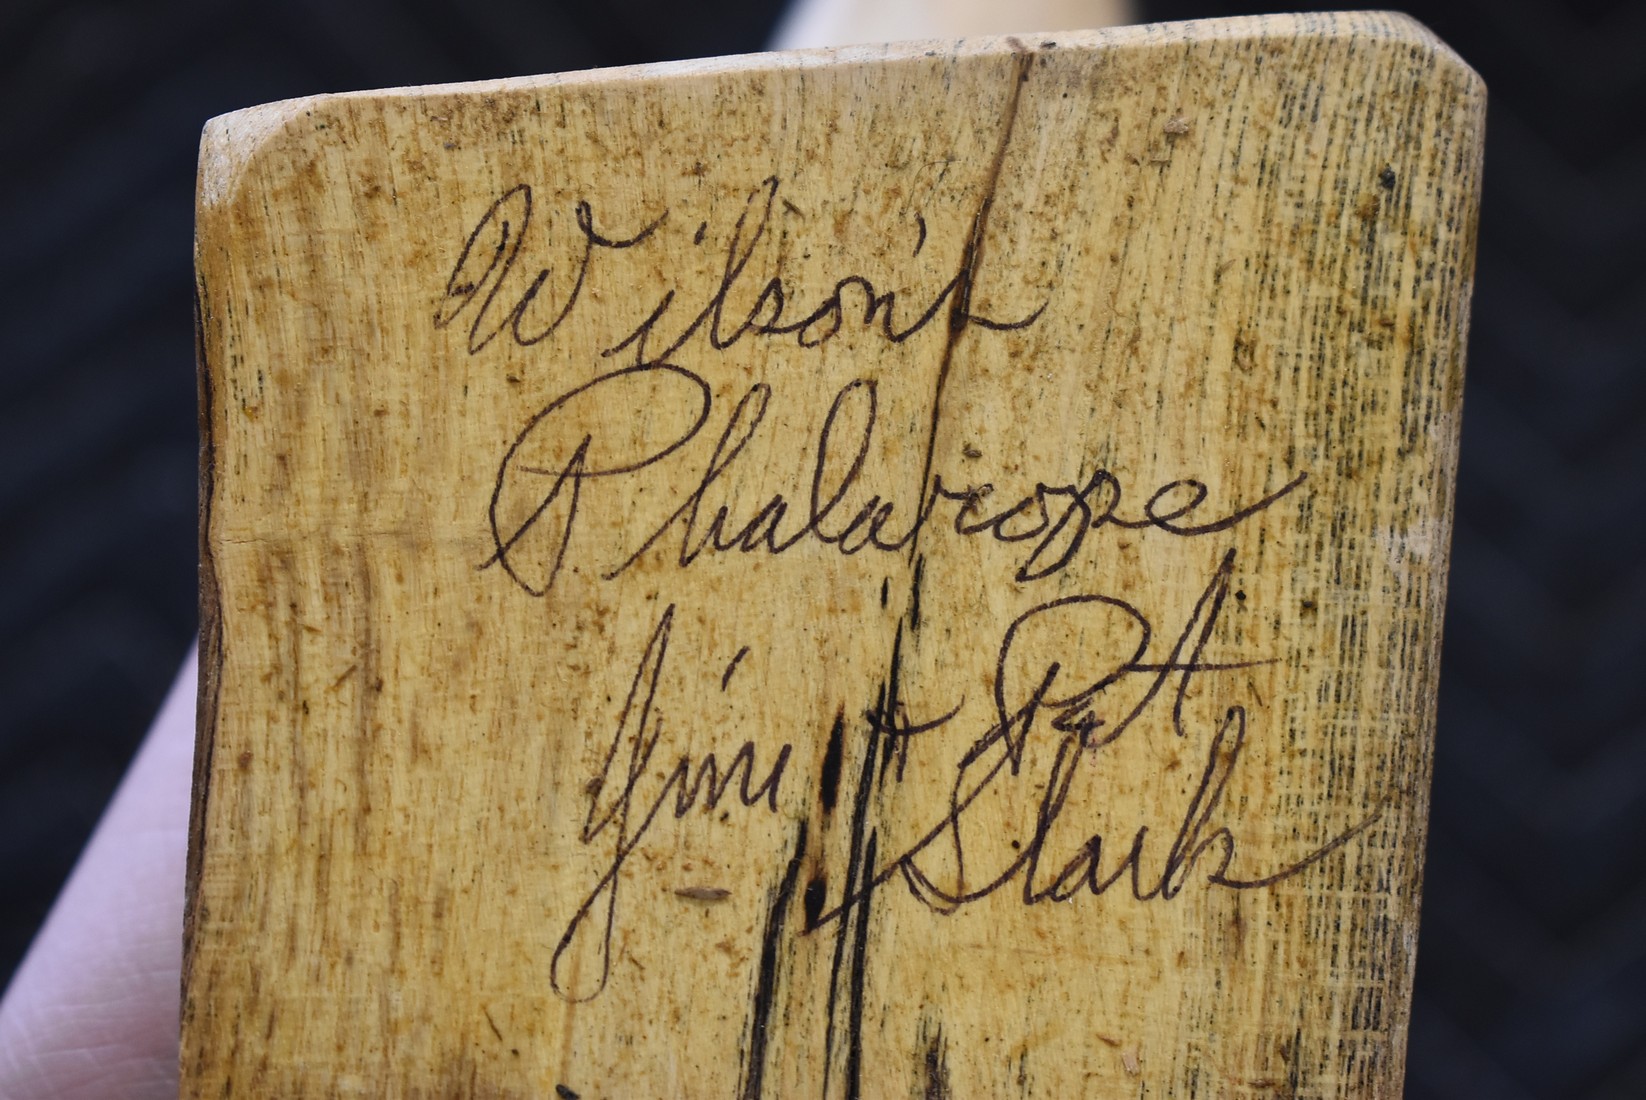 Wilson's
Phalarope
Jim + Pat
Slack